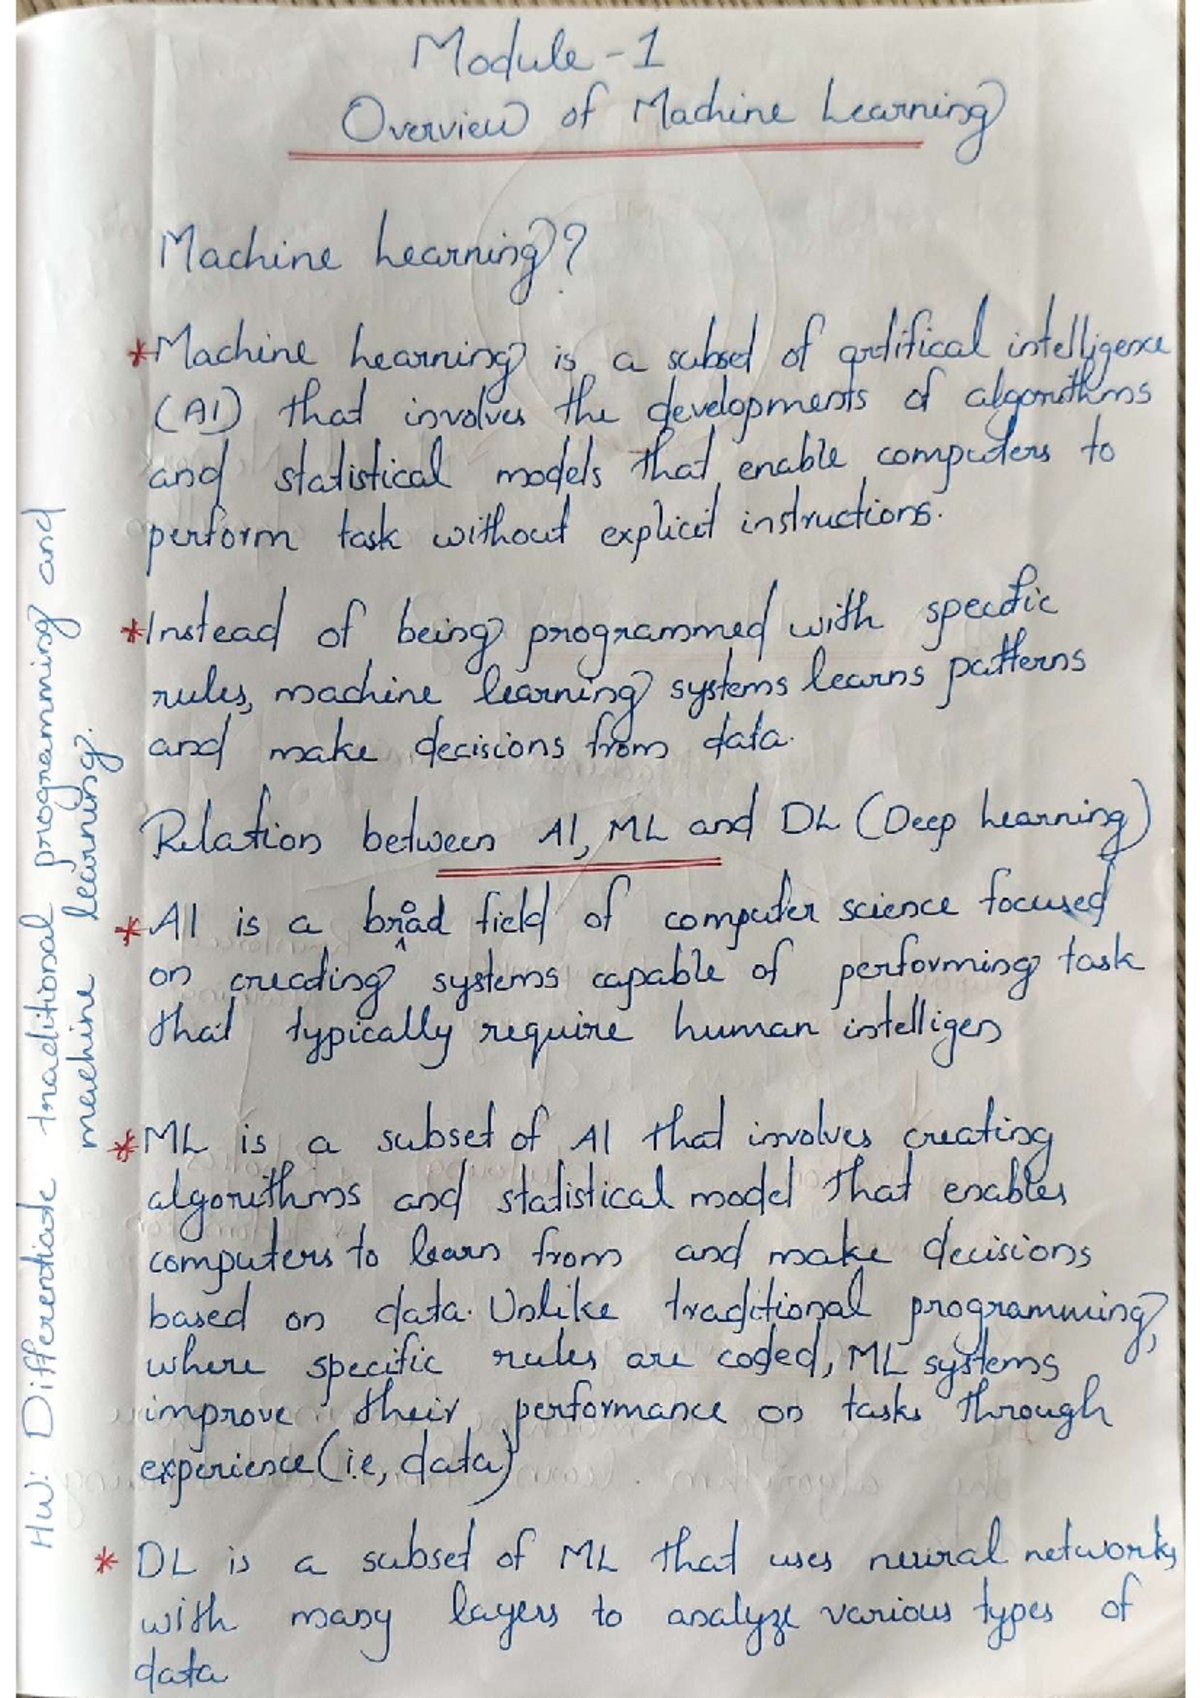 Module - 1
Overview of Machine Learning
Machine Learning?
*Machine Learning is a subset of artifical intelligence
(AI) that involves the developments of algorithms
and statistical models that enable computers to
perform task without explicit instructions.
*Instead of being programmed with specific
rules, machine learning systems learns patterns
and make decisions from data.
Relation between AI, ML and DL (Deep Learning)
*AI is a broad field of computer science focused
on creating systems capable of performing task
that typically require human intelligen
*ML is a subset of AI that involves creating
algorithms and statistical model that enables
computers to learn from and make decisions
based on data. Unlike traditional programming,
where specific rules are coded, ML systems
improve their performance on tasks through
experience (i.e, data)
* DL is a subset of ML that uses neural networks
with many layers to analyze various types of
data
HW: Differentiate traditional programming and
machine learning.